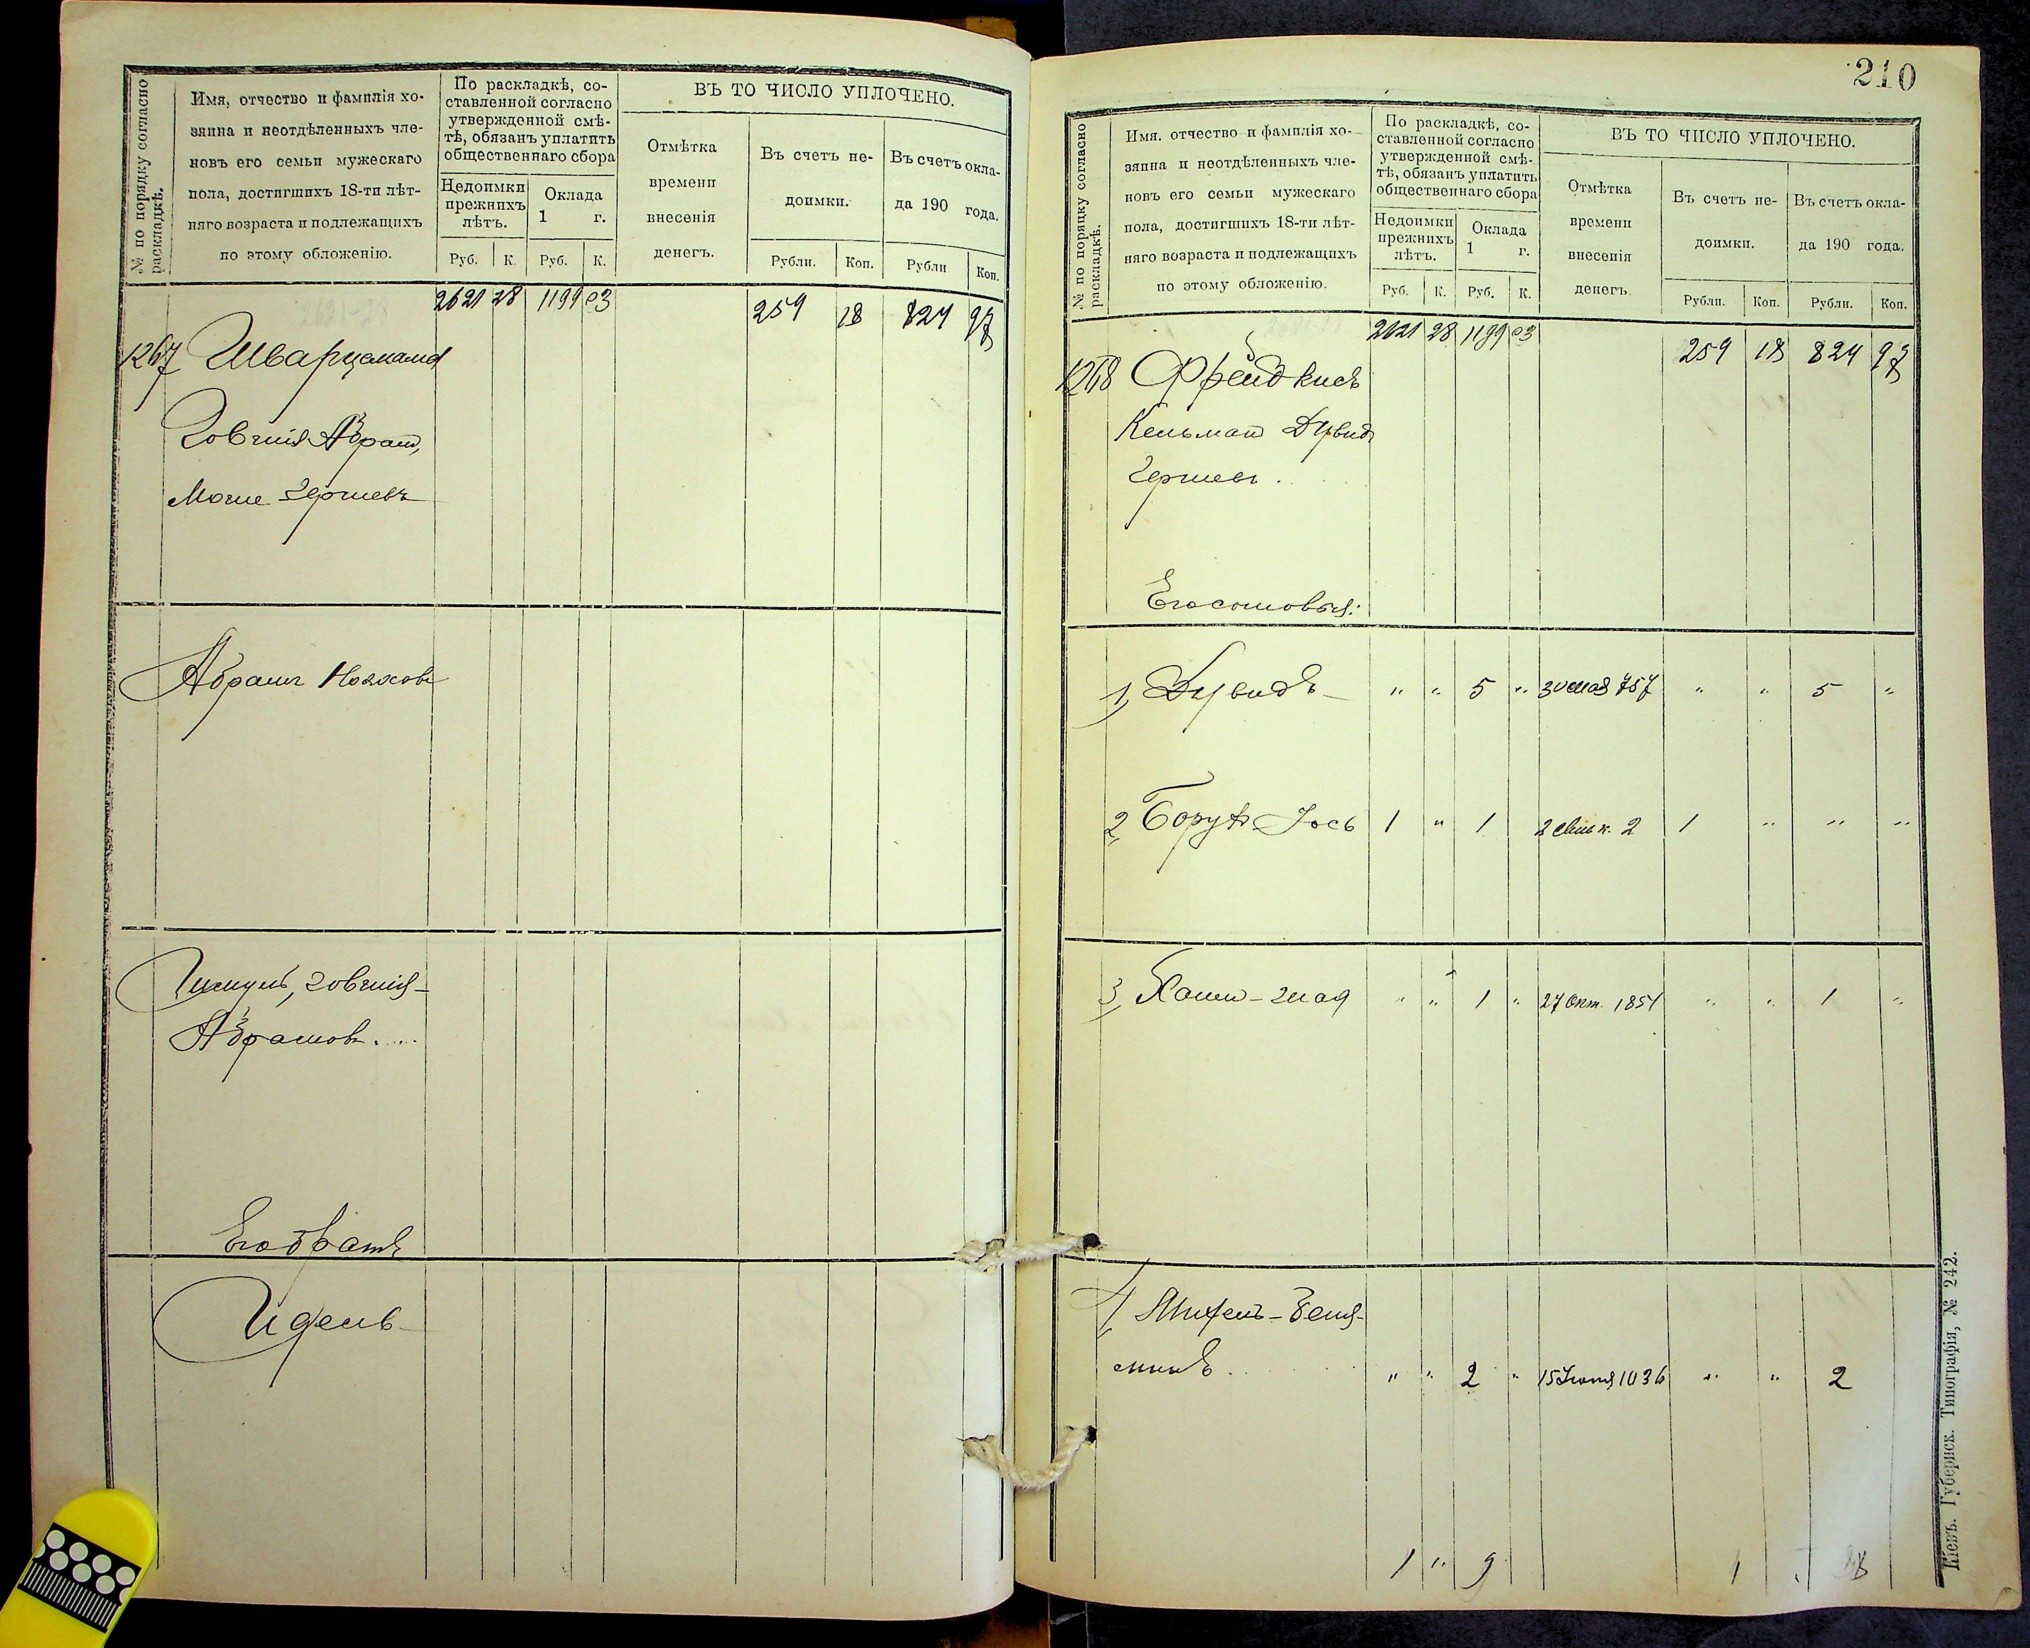 № по порядку согласно раскладкѣ.
Имя, отчество и фамилія хо-
зяина и неотдѣленныхъ чле-
новъ его семьи мужескаго
пола, достигшихъ 18-ти лѣт-
няго возраста и подлежащихъ
по этому обложенію.
По раскладкѣ, со-
ставленной согласно
утвержденной смѣ-
тѣ, обязанъ уплатить
общественнаго сбора
Недоимки
прежнихъ
лѣтъ.
Оклада
1 г.
Руб. К. Руб. К.
ВЪ ТО ЧИСЛО УПЛОЧЕНО.
Отмѣтка
времени
внесенія
денегъ.
Въ счетъ не-
доимки.
Въ счетъ окла-
да 190 года.
Рубли. Коп. Рубли Коп.
2621 28 1199 03 259 18 824 98
1267 Шварцманъ
Говшія Абрам,
Мошe Гершевъ
Абрамъ
Говшія-
Абрамов. ....
Его братъ
Идель
210
№ по порядку согласно раскладкѣ.
Имя, отчество и фамилія хо-
зяина и неотдѣленныхъ чле-
новъ его семьи мужескаго
пола, достигшихъ 18-ти лѣт-
няго возраста и подлежащихъ
по этому обложенію.
По раскладкѣ, со-
ставленной согласно
утвержденной смѣ-
тѣ, обязанъ уплатить
общественнаго сбора
Недоимки
прежнихъ
лѣтъ.
Оклада
1 г.
Руб. К. Руб. К.
ВЪ ТО ЧИСЛО УПЛОЧЕНО.
Отмѣтка
времени
внесенія
денегъ.
Въ счетъ не-
доимки.
Въ счетъ окла-
да 190 года.
Рубли. Коп. Рубли. Коп.
2621 28 1199 03 259 18 824 98
1268 Фрейдкисъ
Кельман Дувид
Гершев.
Его сыновья:
1, Дувидъ - " " 5 " 30 мая 757 " " 5 "
2, Борух-Іось 1 " 1 2 2 1 " " "
3, " " 1 " 27 Окт. 1854 " " 1 "
4, Михель-Беня-
минъ " " 2 " 15 Іюня 1036 " " 2
1 " 9 1
Кіевъ. Губернск. Типографія, № 242.